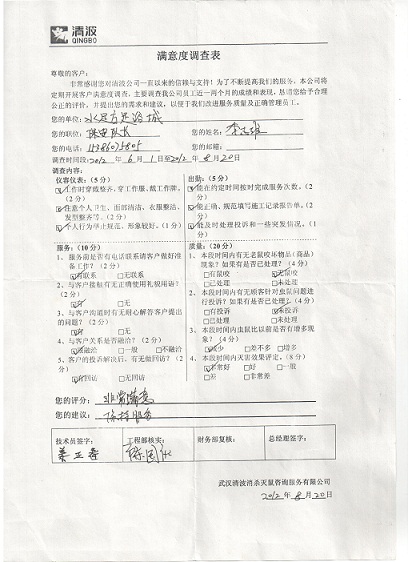 清波
QINGBO
满意度调查表
尊敬的客户：
非常感谢您对清波公司一直以来的信赖与支持！为了不断提高我们的服务，本公司将
定期开展客户满意度调查，主要调查我公司员工近一两个月的成绩和表现，恳请您给予合理
公正的评价，并提出您的需求和建议，以便于我们改进服务质量及正确管理员工。
您的单位：
您的职位： 您的姓名：
您的电话： 您的邮箱：
调查时间段：2012 年 6 月 1 日至 2012 年 8 月 20 日
调查内容：
仪容仪表：（5分） 出勤：（5分）
工作时穿戴整齐，穿工作服、戴工作牌。（2分） 能在约定时间按时完成服务次数。（2分）
注意个人卫生，面部清洁、衣服整洁、发型整齐等。（2分） 能正确、规范填写施工记录报告单。（2分）
个人行为举止规范，形象较好。（1分） 能及时处理投诉和一些突发情况。（1分）
服务：（10分） 质量：（20分）
1、服务前是否有电话联系请客户做好准备工作？（2分）
有联系 □无联系
2、与客户接触有无正确使用礼貌用语？（2分）
有 □无
3、与客户沟通时有无耐心解答客户提出的问题？（2分）
有 □无
4、与客户关系是否融洽？（2分）
融洽 □一般 □不融洽
5、客户的投诉解决后，有无做回访？（2分）
有回访 □无回访
1、本段时间内有无老鼠咬坏物品（商品）现象？如果有是否已处理？（4分）
□有鼠咬 无鼠咬
□已处理 □未处理
2、本段时间内有无顾客针对虫鼠问题进行投诉？如果有是否已处理？（4分）
□有投诉 未投诉
□已处理 □未处理
3、本段时间内虫鼠比以前是否有增多现象？（4分）
减少 □差不多 □增多
4、本段时间内灭害效果评定。（8分）
非常好 □好 □一般
□差 □非常差
您的评分： 非常满意
您的建议： 保持服务
技术员签字： 工程部核实： 财务部复核： 总经理签字：
武汉清波消杀灭鼠咨询服务有限公司
2012 年 8 月 20 日